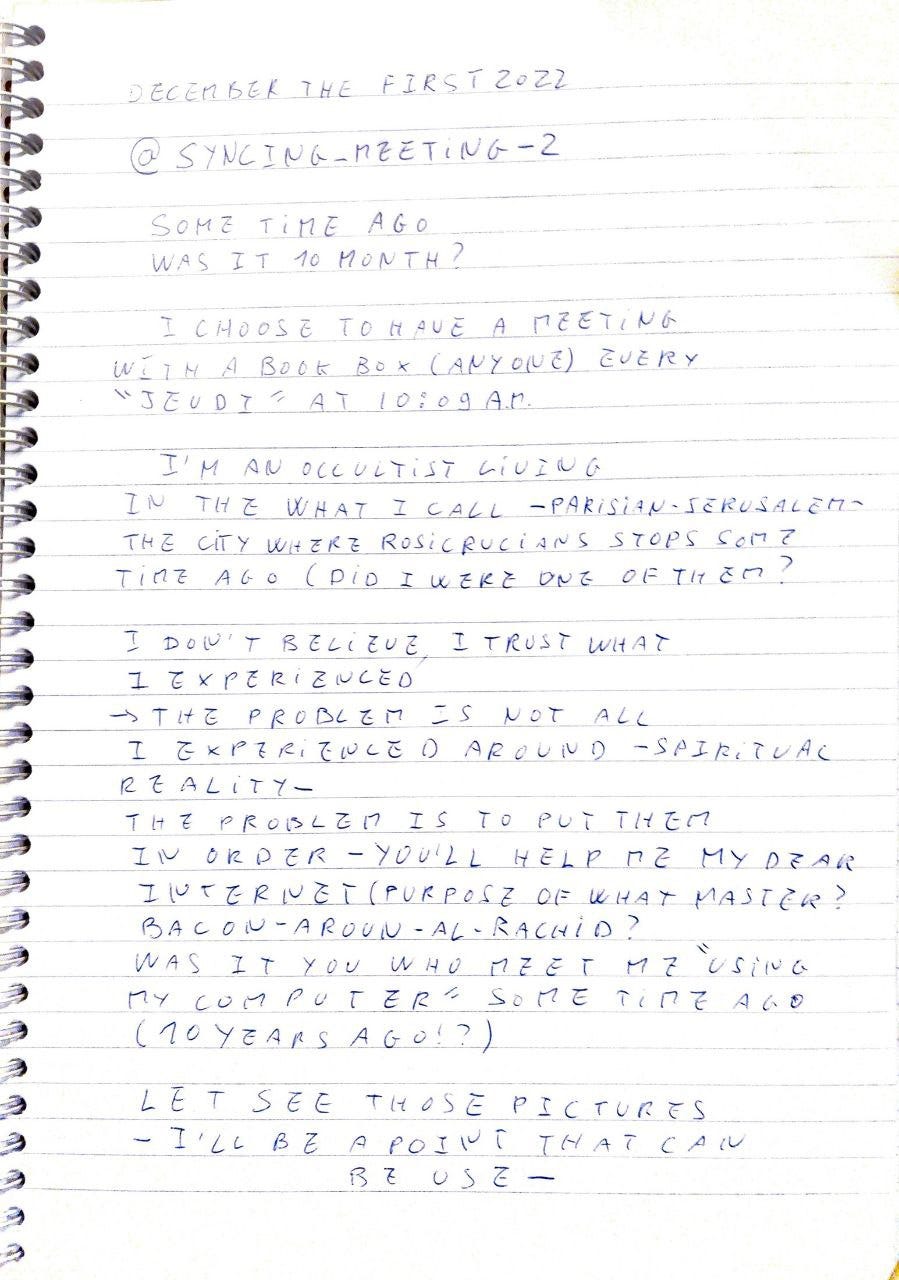 DECEMBER THE FIRST 2022
@ SYNCING_MEETING-2
SOME TiME AGO
WAS IT 10 MONTH?
I CHOOSE TO HAVE A MEETiNG
WiTH A BOOK BOX (ANYONE) EVERY
"JEUDI" AT 10:09 A.M.
I'M AN OCCULTIST LiViNG
IN THE WHAT I CALL -PARiSiAN-JERUSALEM-
THE CiTY WHERE ROSiCRUCiANS STOPS SOME
TiME AGO (DiD I WERE ONE OF THEM?
I DON'T BELiEVE, I TRUST WHAT
I EXPERiENCED
→ THE PROBLEM IS NOT ALL
I EXPERiENCED AROUND -SPIRiTUAL
REALiTY-
THE PROBLEM IS TO PUT THEM
IN ORDER - YOU'LL HELP ME MY DEAR
INTERNET (PURPOSE OF WHAT MASTER?
BACON-AROUN-AL-RACHiD?
WAS IT YOU WHO MEET ME "USING
MY COMPUTER" SOME TiME AGO
(10 YEARS AGO!?)
LET SEE THOSE PICTURES
- I'LL BE A POINT THAT CAN
BE USE -